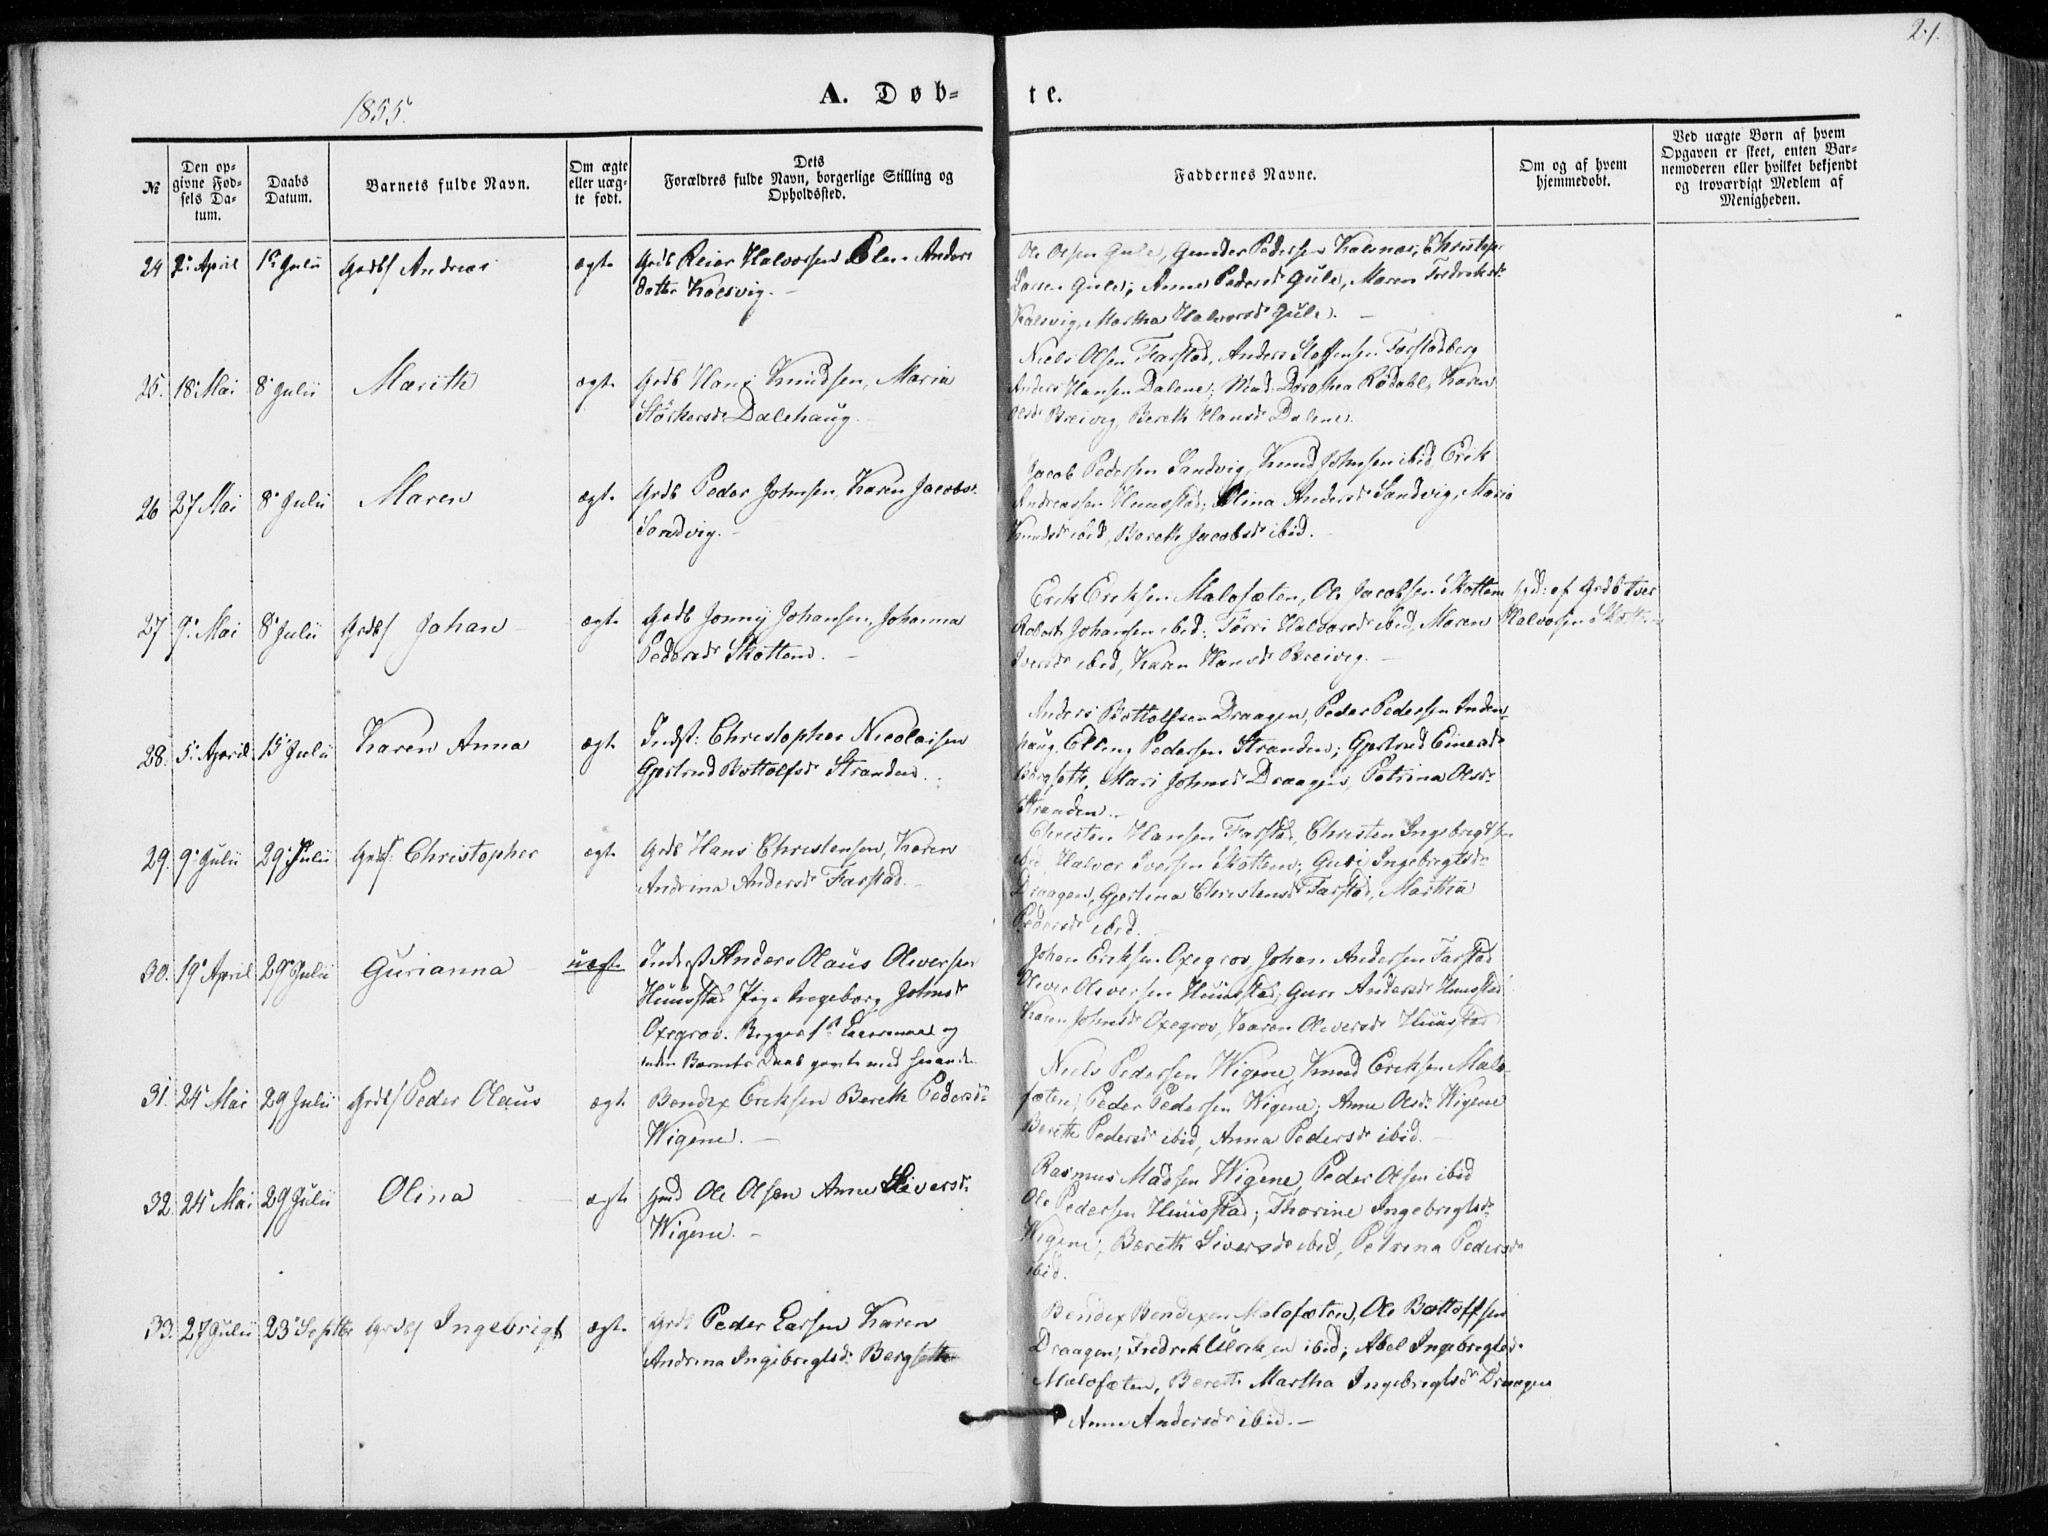 21.
1855.
A. Døb-
te.
No
Den op-
givne Fød-
sels Da-
tum.
Daabs
Datum.
Barnets fulde Navn.
Om ægte
eller uæg-
te født.
Dets
Forældres fulde Navn, borgerlige Stilling og
Opholdssted.
Faddernes Navne.
Om og af hvem
hjemmedøbt.
Ved uægte Børn af hvem
Opgaven er skeet, enten Bar-
nemoderen eller hvilket bekjendt
og troværdigt Medlem af
Menigheden.
24 April 1 Julii Andreas ægte Grdb Reier Halvorsen Anders
datter Kolsvig.
Ole Olsen Gule, Gunder Pedersen Christop
Larsen Gule; Anne Pedersd Gule, Maren Fredriksd
Martha Halvorsd Gule.
25. 18 Mai 8 Julii Marith ægte Grdb Hans Knudsen, Maria
Størkersd Dalehaug.
Niels Olsen Farstad, Anders Steffensen Farstadberg
Anders Hansen Dalene; Mad. Dorothea Rødahl, Karen
Olsd Breivig, Bereth Hansd Dalene.
26 27 Mai 8 Julii Maren ægte Grdb Peder Johnsen, Karen Jacobsd
Sandvig.
Jacob Pedersen Sandvig, Knud Johnsen ibid, Erik
Andreassen Huusstad; Olina Andersd Sandvig, Maria
Knudsd ibid, Bereth Jacobsd ibid.
27 Mai 8 Julii Johan ægte Grdb Jonny Johansen, Johanna
Pedersd Skottem.
Erik Eriksen Malefæten, Ole Jacobsen Skottem hjd: af Grdb Iver
Johansen ibid; Halvorsd ibid, Maren Halvorsen Skottem
Iversd ibid, Karen Hansd Breivig.
28. 5 April 15 Julii Karen Anna ægte Indst: Christopher Nicolaisen
Gjertrud Bottolfsd Stranden.
Anders Bottolfsen Draagen, Peder Pedersen Inden
haug, Elling Pedersen Stranden; Gjertrud Einersd
Bergseth, Mari Johnsd Draagen, Petrina Olsd
Stranden.
29. 9 Julii 29 Julii Christopher ægte Grdb Hans Christensen, Karen
Andrina Andersd Farstad.
Christen Hansen Farstad, Christen Ingebrigtsen
ibid, Halvor Iversen Skottem; Guri Ingebrigtsd
Draagen, Gjertina Christensd Farstad, Martha
Pedersd ibid.
30. 19 April 29 Julii Gurianna uægte Inderst Anders Olaus Oliversen
Huusstad Pige Ingeborg Johnsd
Oxegrov. Begges 1ste Leiermaal og
inden Barnets Daab givte med hinanden
Johan Eriksen Oxegrov, Johan Andersen Farstad
Oliver Oliversen Huusstad; Guri Andersd Huusstad
Karen Johnsd Oxegrov, Karen Oliversd Huusstad
31. 24 Mai 29 Julii Peder Olaus ægte Bendix Eriksen Bereth Pedersd
Wigene.
Niels Pedersen Wigene, Knud Eriksen Male
fæten, Peder Pedersen Wigene; Anne Olsd Wigene
Berethe Pedersd ibid, Anna Pedersd ibid.
32. 24 Mai 29 Julii Olina ægte Ole Olsen Anne Siversd
Wigene.
Rasmus Madsen Wigene, Peder Olsen ibid
Ole Pedersen Huusstad; Thorine Ingebrigtsd
Wigene; Bereth Siversd ibid, Petrina Pedersd
ibid.
33. 27 Julii 23 Septbr Ingebrigt ægte Grdb Peder Larsen Karen
Andrina Ingebrigtsd Bergseth
Bendix Bendixen Malefæten, Ole Bottolfsen
Draagen; Fredrik Ulriksen ibid; Abel Ingebrigtsd
Malefæten, Bereth Martha Ingebrigtsd Draagen
Anne Andersd ibid.